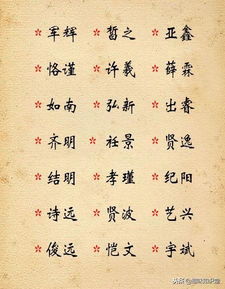 * 军辉 * 皙之 * 亚鑫
* 恪谨 * 许羲 * 薛霖
* 如南 * 弘新 * 出睿
* 齐明 * 祍景 * 贤逸
* 结明 * 孝瑾 * 纪阳
* 诗远 * 贤波 * 艺兴
* 俊远 * 恺文 * 宇斌